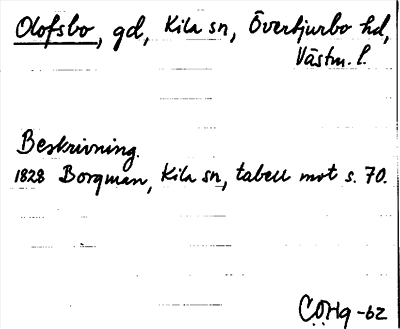 Olofsbo, gd, Kila sn, Övertjurbo hd,
Västm. l.
Beskrivning.
1828 Borgman, Kila sn, tabell mot s. 70.
C.Ö.Hg -62